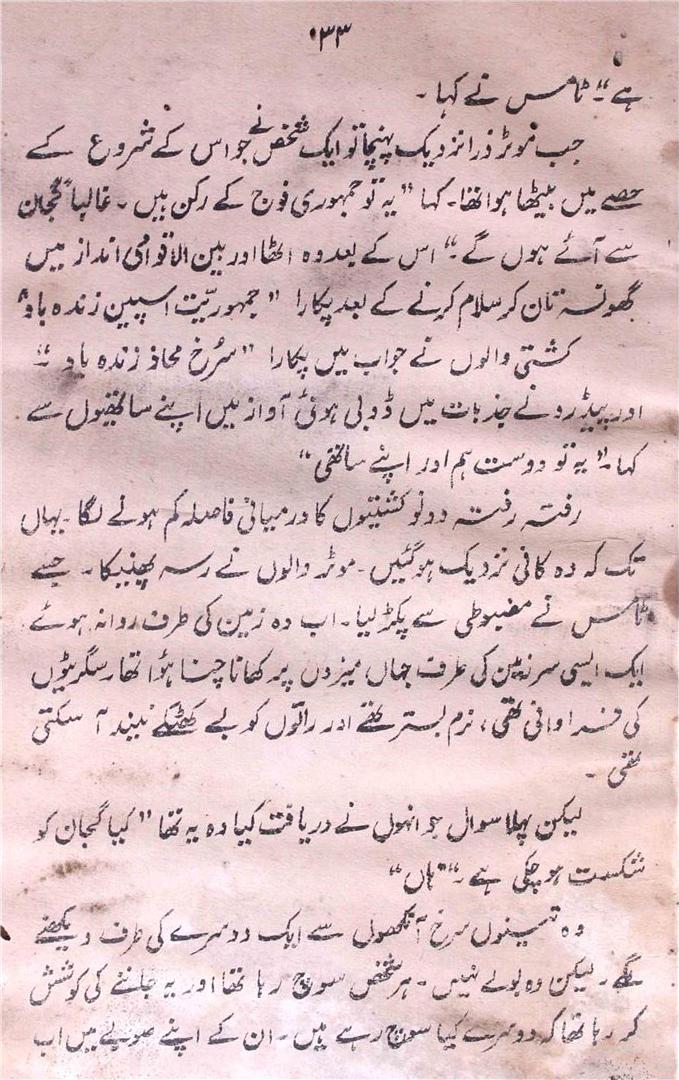 ۱۳۳
ہے“ ٹامس نے کہا ۔
جب موٹر ذرا نزدیک پہنچا تو ایک شخص نے جو اس کے شروع کے
حصے میں بیٹھا ہوا تھا۔ کہا ”یہ تو جمہوری فوج کے رکن ہیں ۔ غالباً گجان
سے آئے ہوں گے“ اس کے بعد وہ اٹھا اور بین الاقوامی انداز میں
گھونسہ تان کر سلام کرنے کے بعد پکارا ”جمہوریّت اسپین زندہ باد“
کشتی والوں نے جواب میں پکارا ”سُرخ محاذ زندہ باد“
اور پیڈرو نے جذبات میں ڈوبی ہوئی آواز میں اپنے ساتھیوں سے
کہا۔ ”یہ تو دوست ہم اور اپنے ساتھی“
رفتہ رفتہ دونو کشتیوں کا درمیانی فاصلہ کم ہونے لگا۔ یہاں
تک کہ وہ کافی نزدیک ہوگئیں۔ موٹر والوں نے رسہ پھینکا۔ جسے
ٹامس نے مضبوطی سے پکڑ لیا۔ اب وہ زمین کی طرف روانہ ہوئے
ایک ایسی سرزمین کی طرف جہاں میزوں پر کھانا چنا ہؤا تھا، سگریٹوں
کی فراوانی تھی، نرم بستر تھے اور راتوں کو بے کھٹکے نیند آ سکتی
تھی ۔
لیکن پہلا سوال جو انہوں نے دریافت کیا وہ یہ تھا ”کیا گجان کو
شکست ہو چکی ہے۔“ ”ہاں“
وہ تینوں سرخ آنکھوں سے ایک دوسرے کی طرف دیکھنے
لگے۔ لیکن وہ بولے نہیں۔ ہر شخص سوچ رہا تھا اور یہ جاننے کی کوشش
کر رہا تھا کہ دوسرے کیا سوچ رہے ہیں۔ ان کے اپنے صوبے میں اب